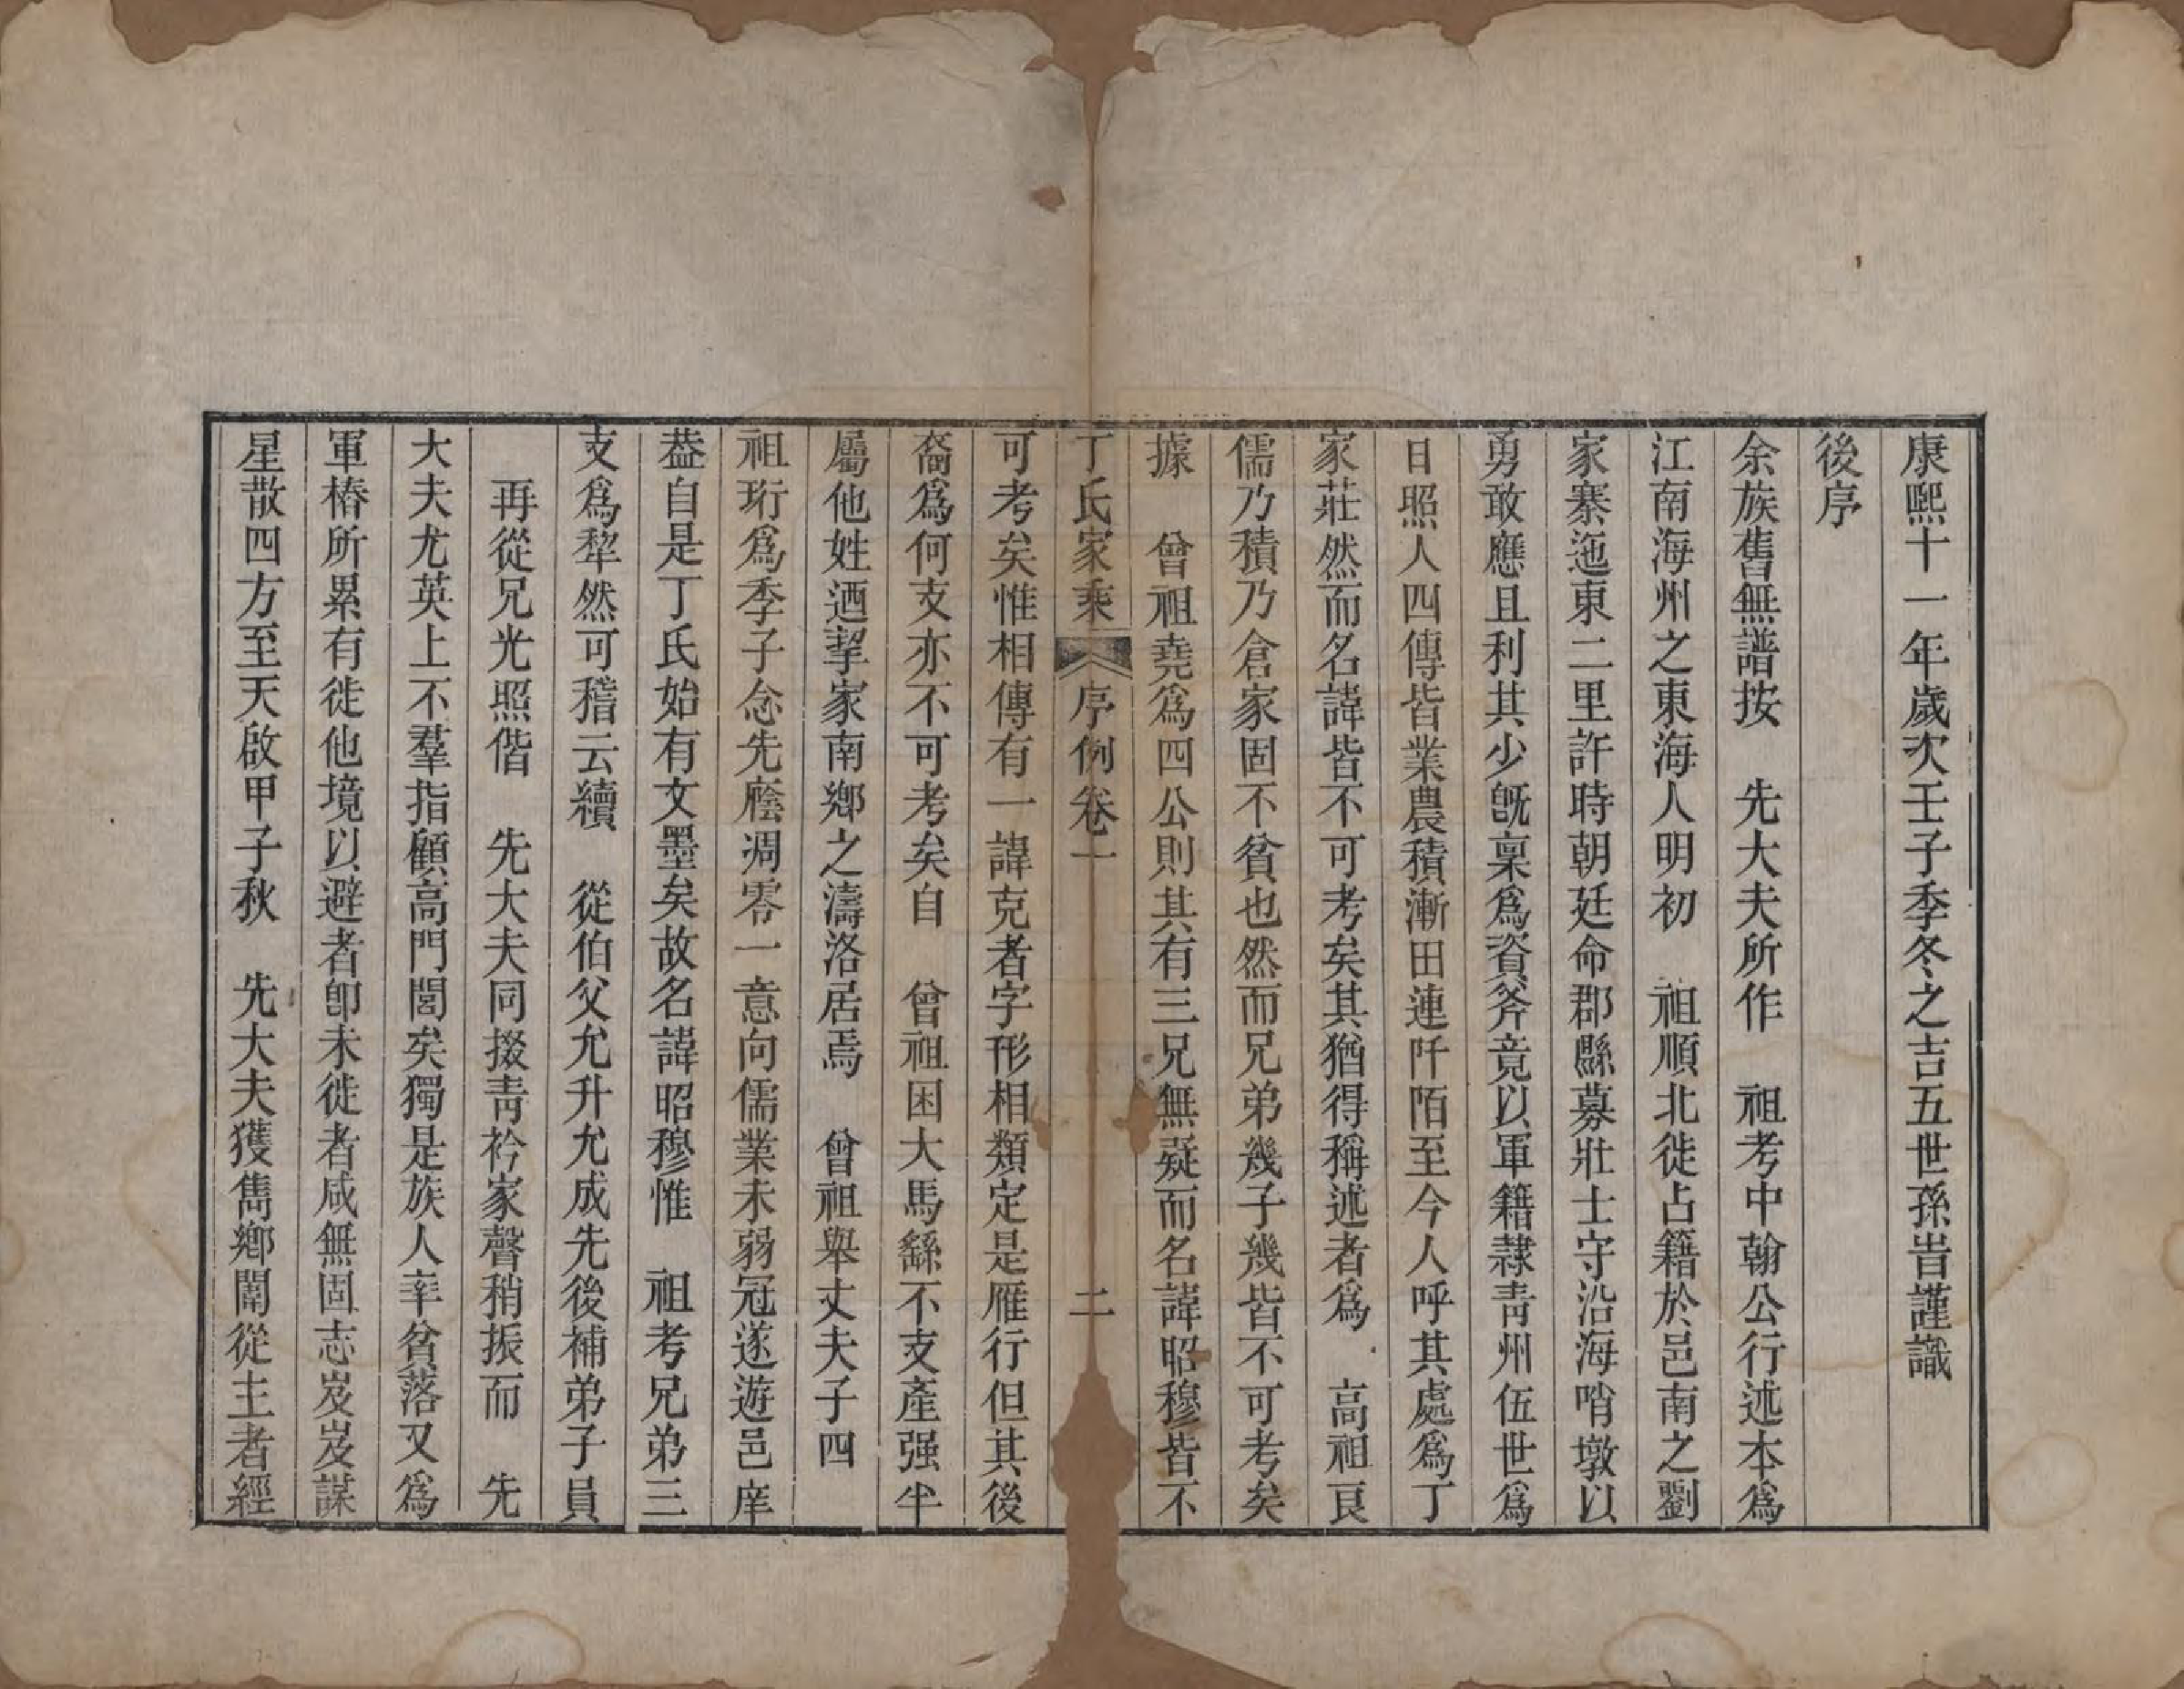 康熙十一年歲次壬子季冬之吉五世孫旹謹識
後序
余族舊無譜按　先大夫所作　祖考中翰公行述本爲
江南海州之東海人明初　祖順北徙占籍於邑南之劉
家寨迤東二里許時朝廷命郡縣募壯士守沿海哨墩以
勇敢應且利其少旣稟爲資斧竟以軍籍隷靑州伍世爲
日照人四傳皆業農積漸田連阡陌至今人呼其處爲丁
家莊然而名諱皆不可考矣其猶得稱述者爲　高祖良
儒乃積乃倉家固不貧也然而兄弟幾子幾皆不可考矣
據　曾祖堯爲四公則其有三兄無疑而名諱昭穆皆不
丁氏家乘　序例卷一　二
可考矣惟相傳有一諱克者字形相類定是雁行但其後
裔爲何支亦不可考矣自　曾祖困大馬繇不支產强半
屬他姓迺挈家南鄉之濤洛居焉　曾祖舉丈夫子四
祖珩爲季子念先廕凋零一意向儒業未弱冠遂遊邑庠
葢自是丁氏始有文墨矣故名諱昭穆惟　祖考兄弟三
支爲犂然可稽云續　從伯父允升允成先後補弟子員
再從兄光照偕　先大夫同掇靑衿家聲稍振而　先
大夫尤英上不羣指顧高門閭矣獨是族人率貧落又爲
軍樁所累有徙他境以避者卽未徙者咸無固志岌岌謀
星散四方至天啟甲子秋　先大夫獲雋鄉闈從主者經